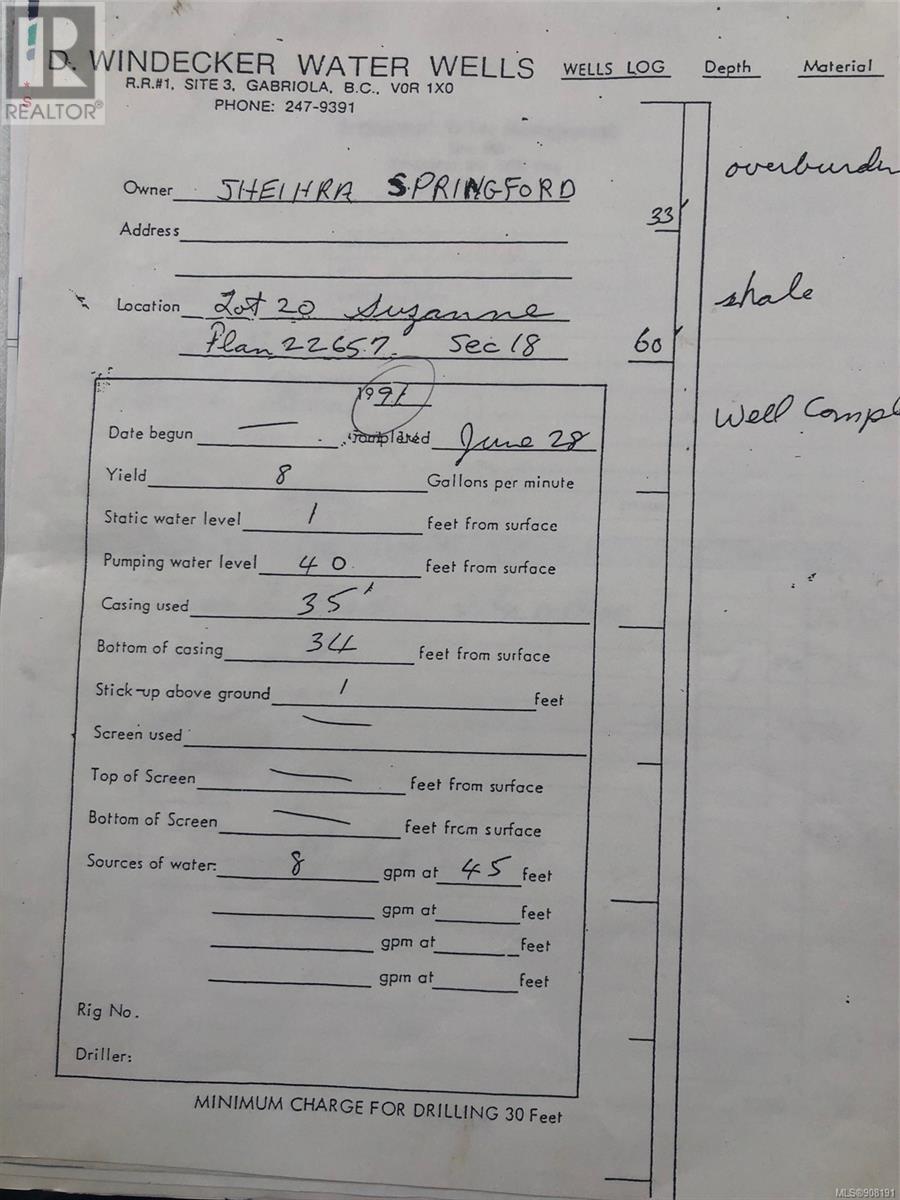 D. WINDECKER WATER WELLS
R.R.#1, SITE 3, GABRIOLA, B.C., V0R 1X0
PHONE: 247-9391
WELLS LOG Depth Material
REALTOR®
overburden
Owner SPRINGFORD
33'
Address
shale
Location Lot 20 Suzanne
Plan 22657 Sec 18
60'
Well Compl
1991
Date begun — completed June 28
Yield 8 Gallons per minute
Static water level 1 feet from surface
Pumping water level 40 feet from surface
Casing used 35'
Bottom of casing 34 feet from surface
Stick-up above ground 1 feet
Screen used —
Top of Screen — feet from surface
Bottom of Screen — feet from surface
Sources of water: 8 gpm at 45 feet
gpm at feet
gpm at feet
gpm at feet
Rig No.
Driller:
MINIMUM CHARGE FOR DRILLING 30 Feet
MLS®908191